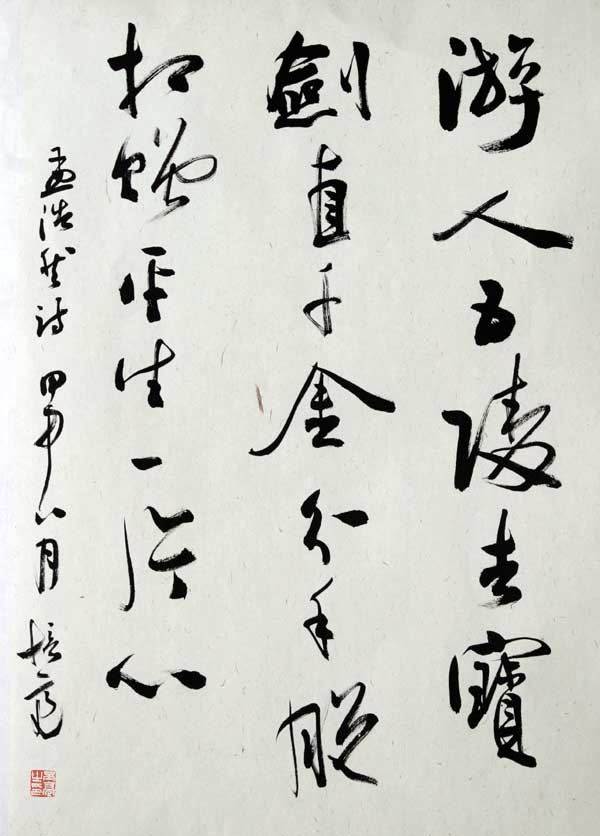 游人五陵去寶
劍直千金分手脱
相贈平生一片心
孟浩然詩 甲申八月 培